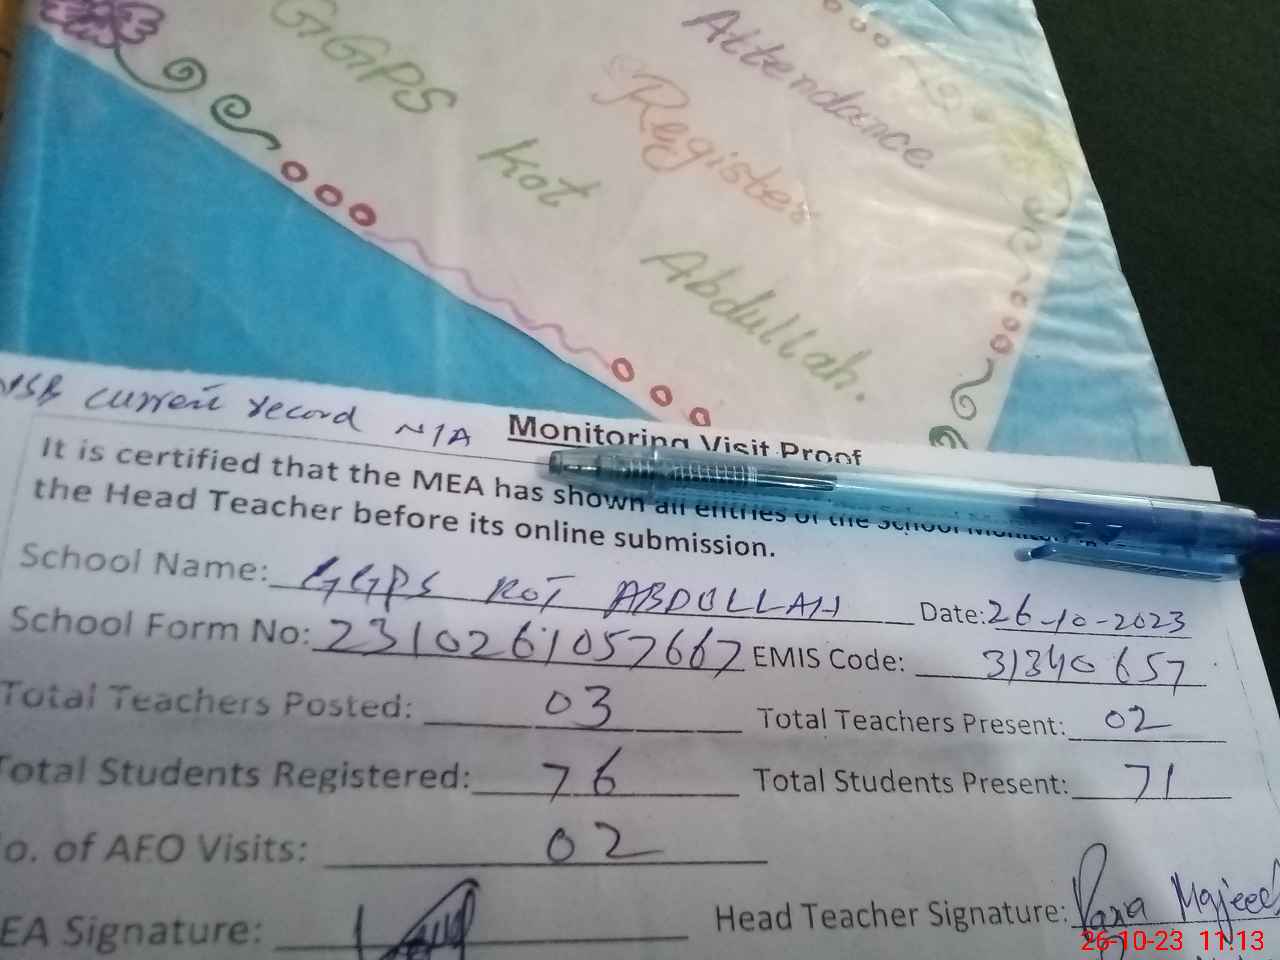 Attendance
Register
GGPS Kot Abdullah.
current record N/A
Monitoring Visit Proof
It is certified that the MEA has shown all entries of the School
the Head Teacher before its online submission.
School Name: GGPS KOT ABDULLAH Date: 26-10-2023
School Form No: 2310261057667 EMIS Code: 31340657
Total Teachers Posted: 03 Total Teachers Present: 02
Total Students Registered: 76 Total Students Present: 71
o. of AFO Visits: 02
EA Signature: Head Teacher Signature: Razia Majeed
26-10-23 11:13